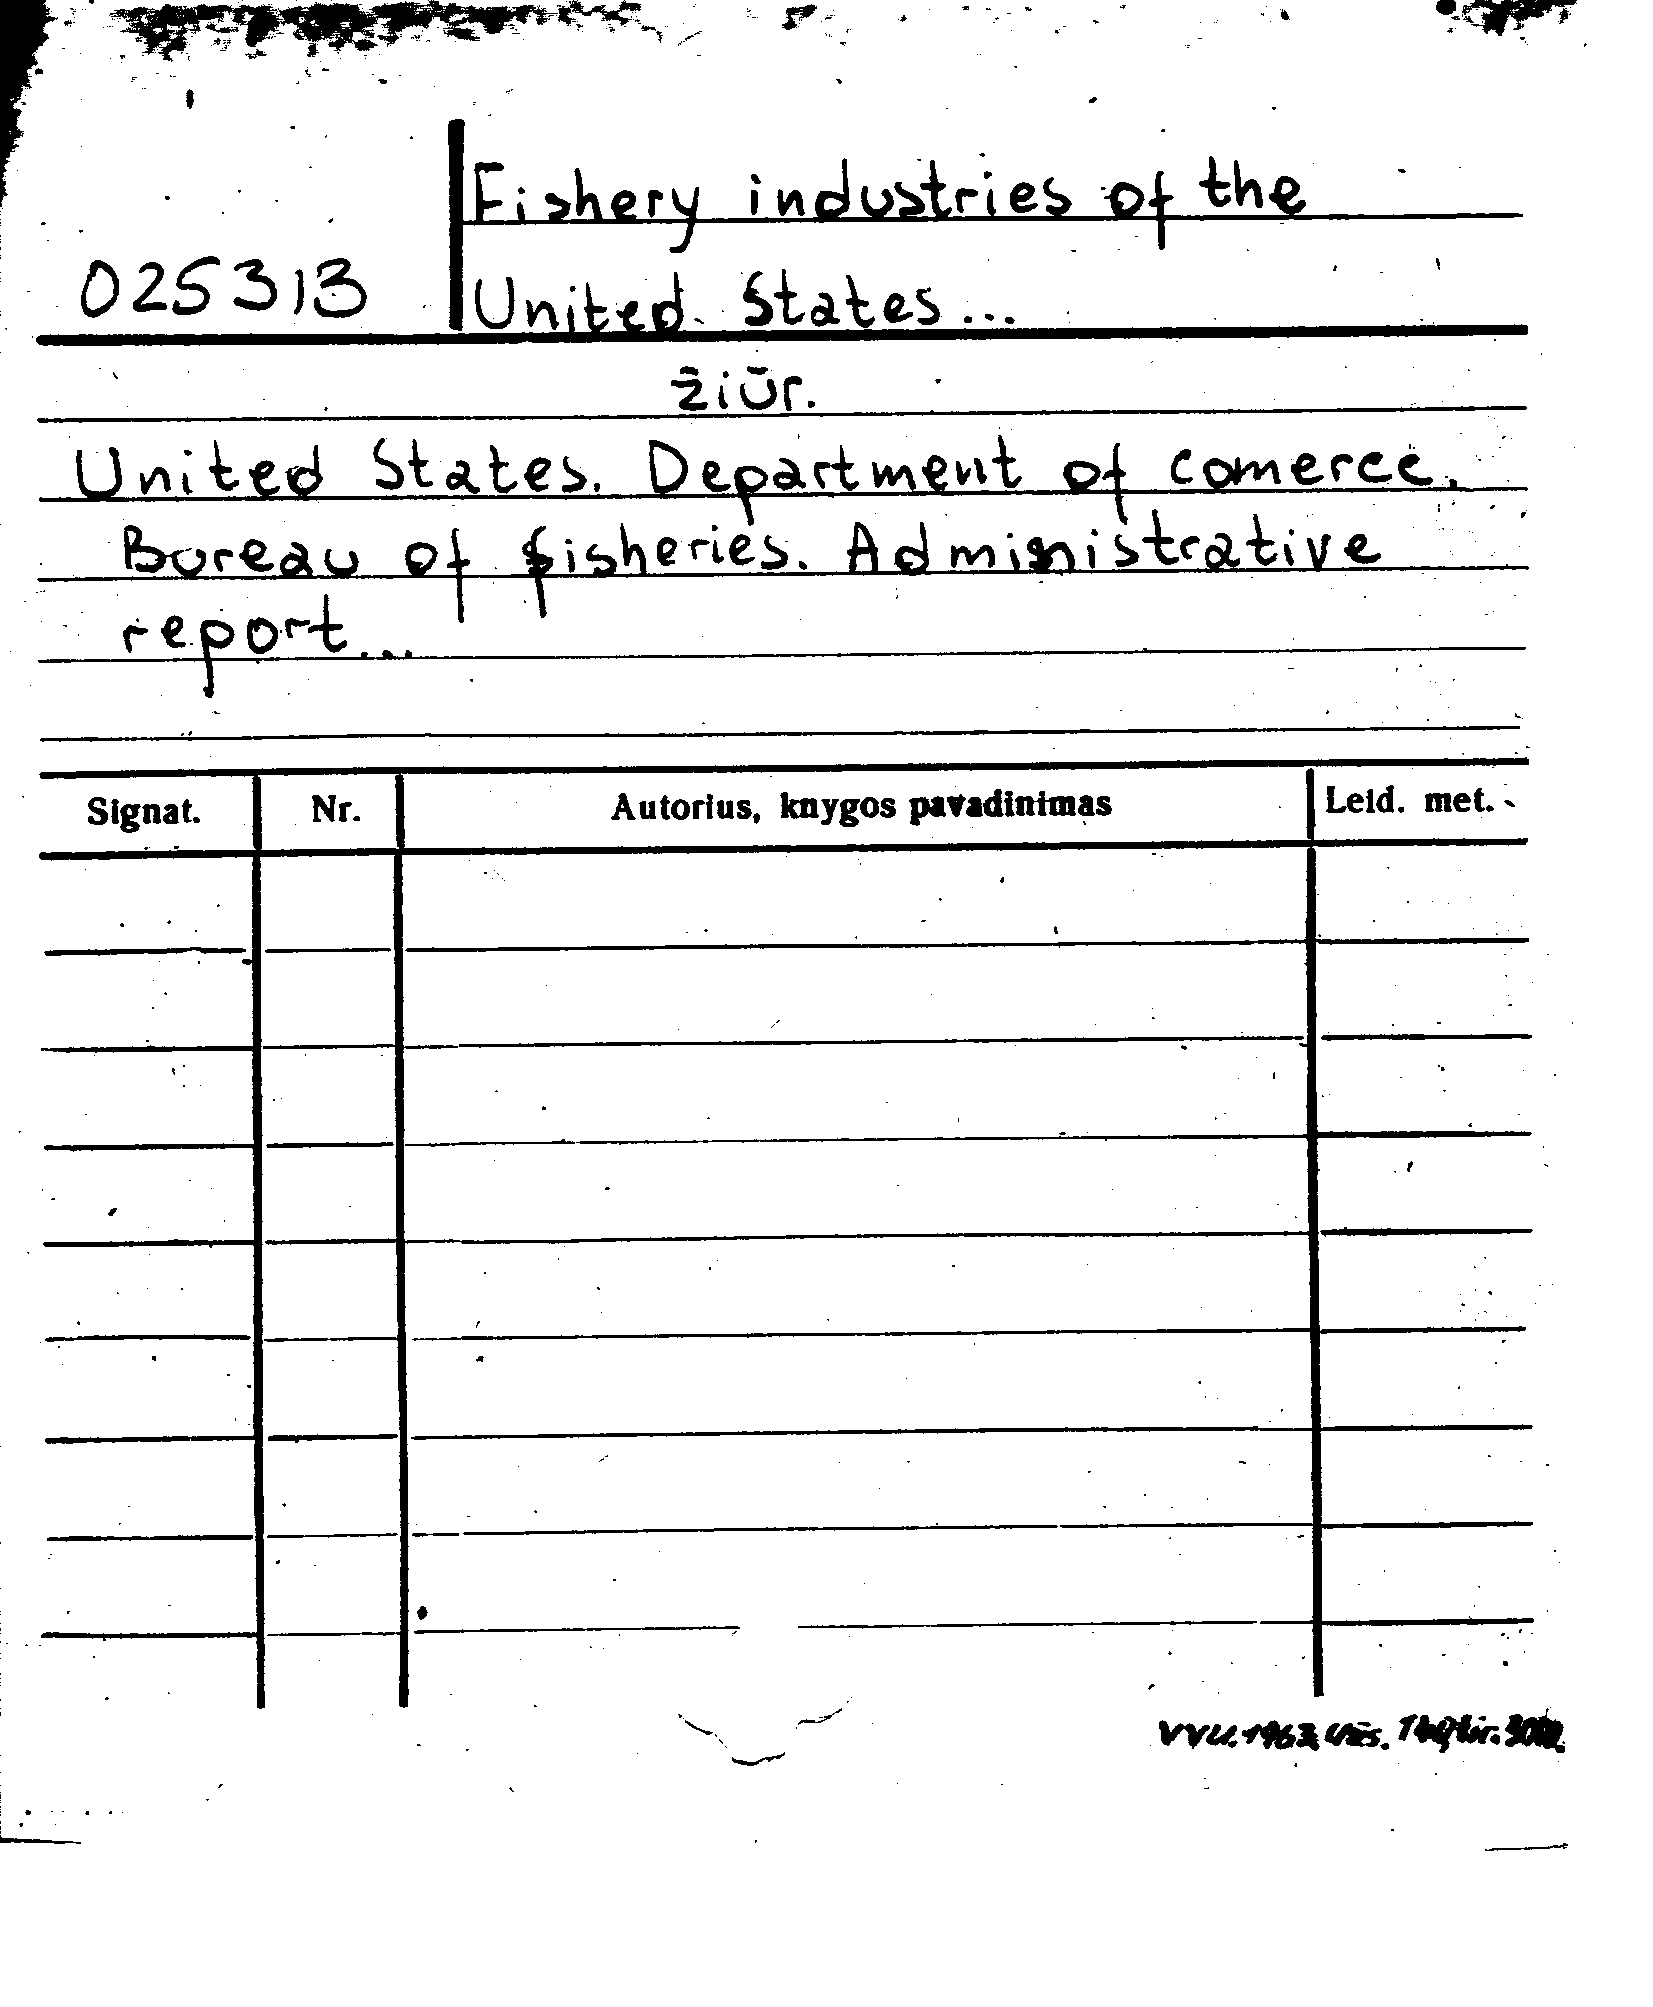 Fishery industries of the
025313
United States...
žiūr.
United States. Department of comerce.
Bureau of fisheries. Administrative
report...
Signat. Nr. Autorius, knygos pavadinimas Leid. met.
VVU. 1963 Užs.